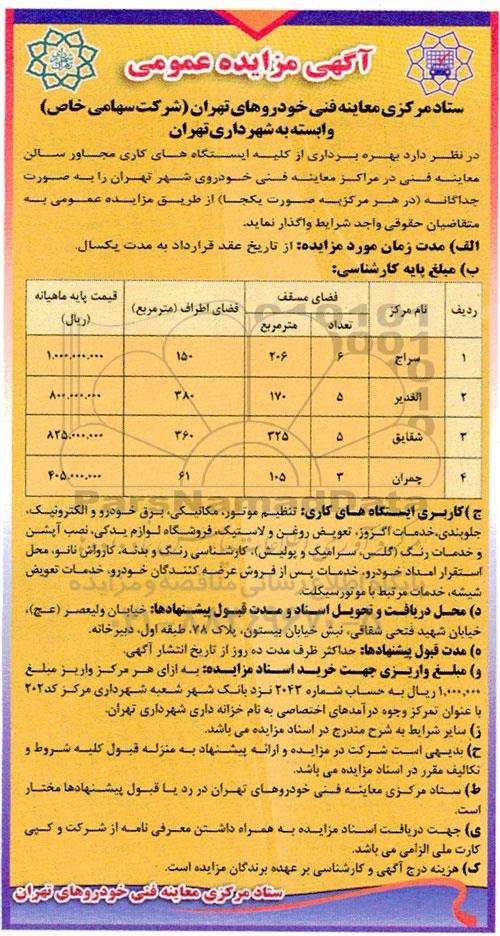 آگهی مزایده عمومی
ستاد مرکزی معاینه فنی خودروهای تهران (شرکت سهامی خاص)
وابسته به شهرداری تهران
در نظر دارد بهره برداری از کلیه ایستگاه های کاری مجاور سالن
معاینه فنی در مراکز معاینه فنی خودروی شهر تهران را به صورت
جداگانه (در هر مرکز به صورت یکجا) از طریق مزایده عمومی به
متقاضیان حقوقی واجد شرایط واگذار نماید.
الف) مدت زمان مورد مزایده: از تاریخ عقد قرارداد به مدت یکسال.
ب) مبلغ پایه کارشناسی:
ردیف نام مرکز فضای مسقف فضای اطراف (مترمربع) قیمت پایه ماهیانه (ریال)
تعداد مترمربع
۱ سراج ۶ ۲۰۶ ۱۵۰ ۱.۰۰۰.۰۰۰.۰۰۰
۲ الغدیر ۵ ۱۷۰ ۳۸۰ ۸۰۰.۰۰۰.۰۰۰
۳ شقایق ۵ ۳۲۵ ۳۶۰ ۸۲۵.۰۰۰.۰۰۰
۴ چمران ۳ ۱۰۵ ۶۱ ۴۰۵.۰۰۰.۰۰۰
ج) کاربری ایستگاه های کاری: تنظیم موتور، مکانیکی، برق خودرو و الکترونیک،
جلوبندی، خدمات اگزوز، تعویض روغن و لاستیک، فروشگاه لوازم یدکی، نصب آپشن
و خدمات رنگ (گلس، سرامیک و پولیش)، کارشناسی رنگ و بدنه، کارواش نانو، محل
استقرار امداد خودرو، خدمات پس از فروش عرضه کنندگان خودرو، خدمات تعویض
شیشه، خدمات مرتبط با موتورسیکلت.
د) محل دریافت و تحویل اسناد و مدت قبول پیشنهادها: خیابان ولیعصر (عج)،
خیابان شهید فتحی شقاقی، نبش خیابان بیستون، پلاک ۷۸، طبقه اول، دبیرخانه.
ه) مدت قبول پیشنهادها: حداکثر ظرف مدت ده روز از تاریخ انتشار آگهی.
و) مبلغ واریزی جهت خرید اسناد مزایده: به ازای هر مرکز واریز مبلغ
۱.۰۰۰.۰۰۰ ریال به حساب شماره ۲۰۴۳ نزد بانک شهر شعبه شهرداری مرکز کد ۲۰۲
با عنوان تمرکز وجوه درآمدهای اختصاصی به نام خزانه داری شهرداری تهران.
ز) سایر شرایط به شرح مندرج در اسناد مزایده می باشد.
ح) بدیهی است شرکت در مزایده و ارائه پیشنهاد به منزله قبول کلیه شروط و
تکالیف مقرر در اسناد مزایده می باشد.
ط) ستاد مرکزی معاینه فنی خودروهای تهران در رد یا قبول پیشنهادها مختار
است.
ی) جهت دریافت اسناد مزایده به همراه داشتن معرفی نامه از شرکت و کپی
کارت ملی الزامی می باشد.
ک) هزینه درج آگهی و کارشناسی بر عهده برندگان مزایده است.
ستاد مرکزی معاینه فنی خودروهای تهران
ParsNamadData